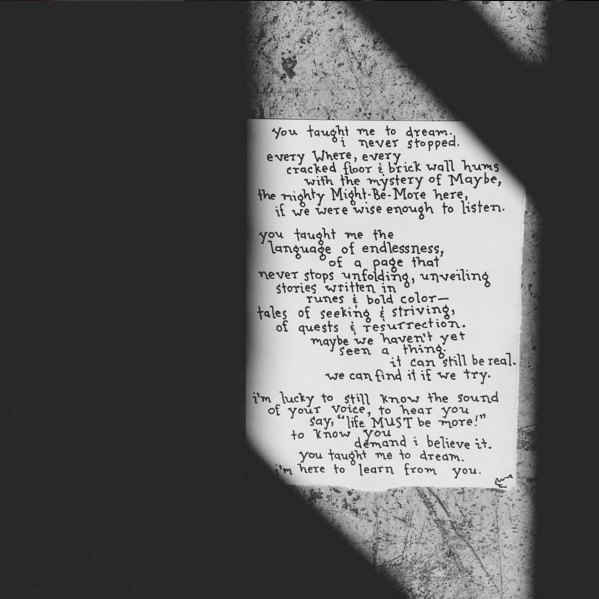 you taught me to dream.
i never stopped.
every Where, every
cracked floor & brick wall hums
with the mystery of Maybe,
the mighty Might-Be-More here,
if we were wise enough to listen.
you taught me the
language of endlessness,
of a page that
never stops unfolding, unveiling
stories written in
runes & bold color—
tales of seeking & striving,
of quests & resurrection.
maybe we haven't yet
seen a thing.
it can still be real.
we can find it if we try.
i'm lucky to still know the sound
of your voice, to hear you
say, "life MUST be more!"
to know you
demand i believe it.
you taught me to dream.
i'm here to learn from you.